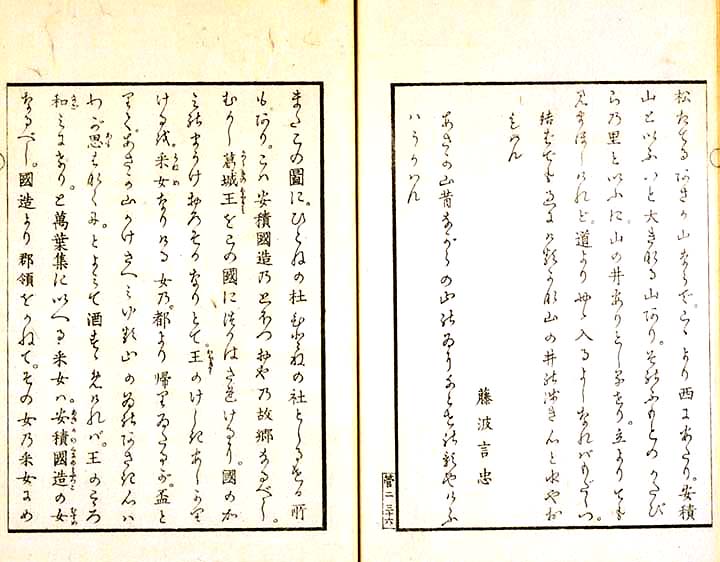 松たてるあさか山ならで。こゝより西にあたり。安積
山といふいと大きなる山あり。そのふもとのかたび
らの里といふに。山の井ありと
立よりても
見まほしけれど。道よりやゝ入るよしなればもだしつ。
結むでも 山の井の
もはん
藤波言忠
あさか山昔ながらの山の井
菅二 三十六
またこの圖に。ひとねの杜むとねの社としるせる所
もあり。こは安積國造のとほつおやの故郷なるべし。
むかし葛城王をこの國につかはされけるに。國のか
みのまうけおろそかなりとて。王のけしきあしかり
けるを。采女なりける女の。都より帰りゐたるが。盃と
りて。あさか山かげさへみゆる山の井のあさき心は
わが思はなくに。とよみて酒すゝめければ。王のこゝろ
和みにけり。と萬葉集にいへる采女は。安積國造の女
なるべし。國造より郡領をかねて。その女の采女にめ